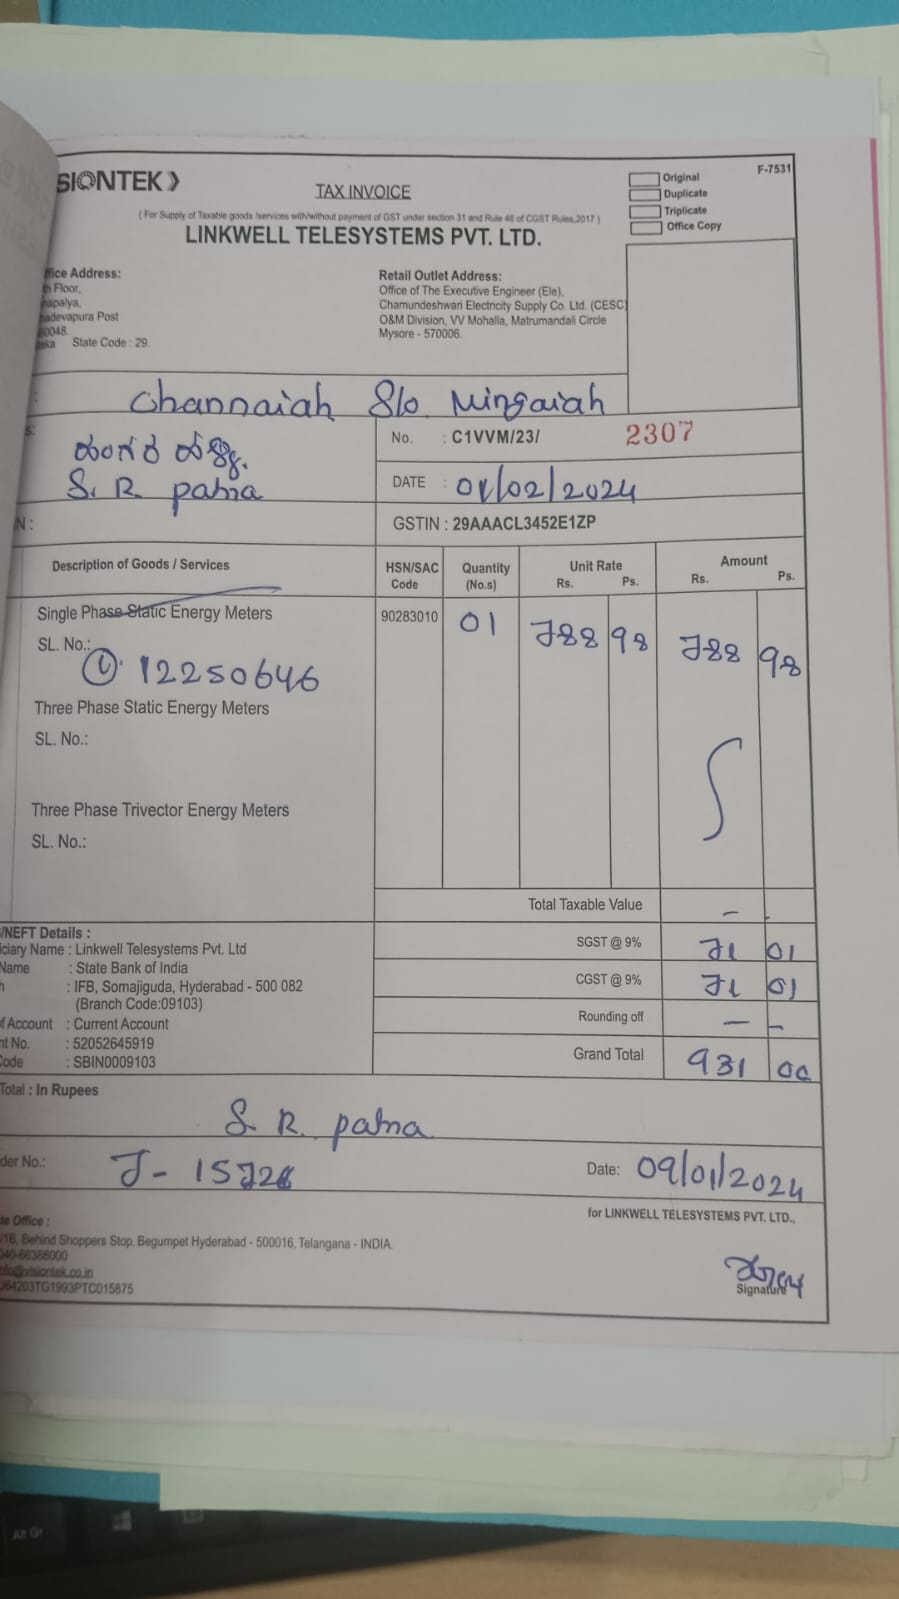 SIONTEK
TAX INVOICE
F-7531
Original
Duplicate
Triplicate
Office Copy
( For Supply of Taxable goods /services with/without payment of GST under section 31 and Rule 46 of CGST Rules,2017 )
LINKWELL TELESYSTEMS PVT. LTD.
fice Address:
h Floor,
apalya,
adevapura Post
0048.
aka State Code : 29.
Retail Outlet Address:
Office of The Executive Engineer (Ele),
Chamundeshwari Electricity Supply Co. Ltd. (CESC)
O&M Division, VV Mohalla, Matrumandali Circle
Mysore - 570006.
Channaiah S/o Ningaiah
s:
S. R. patna
No. : C1VVM/23/ 2307
DATE : 01/02/2024
N :
GSTIN : 29AAACL3452E1ZP
Description of Goods / Services HSN/SAC Code Quantity (No.s) Unit Rate Rs. Ps. Amount Rs. Ps.
Single Phase Static Energy Meters 90283010 01 788 98 788 98
SL. No.:
12250646
Three Phase Static Energy Meters
SL. No.:
Three Phase Trivector Energy Meters
SL. No.:
Total Taxable Value - -
SGST @ 9% 71 01
CGST @ 9% 71 01
Rounding off - -
Grand Total 931 00
/NEFT Details :
ciary Name : Linkwell Telesystems Pvt. Ltd
Name : State Bank of India
h : IFB, Somajiguda, Hyderabad - 500 082
(Branch Code:09103)
f Account : Current Account
nt No. : 52052645919
Code : SBIN0009103
Total : In Rupees
S. R. patna
der No.:
Date: 09/01/2024
for LINKWELL TELESYSTEMS PVT. LTD.,
te Office :
/1B, Behind Shoppers Stop, Begumpet Hyderabad - 500016, Telangana - INDIA.
040-66388000
nfo@visiontek.co.in
U64203TG1993PTC015875
Signature
Alt Gr